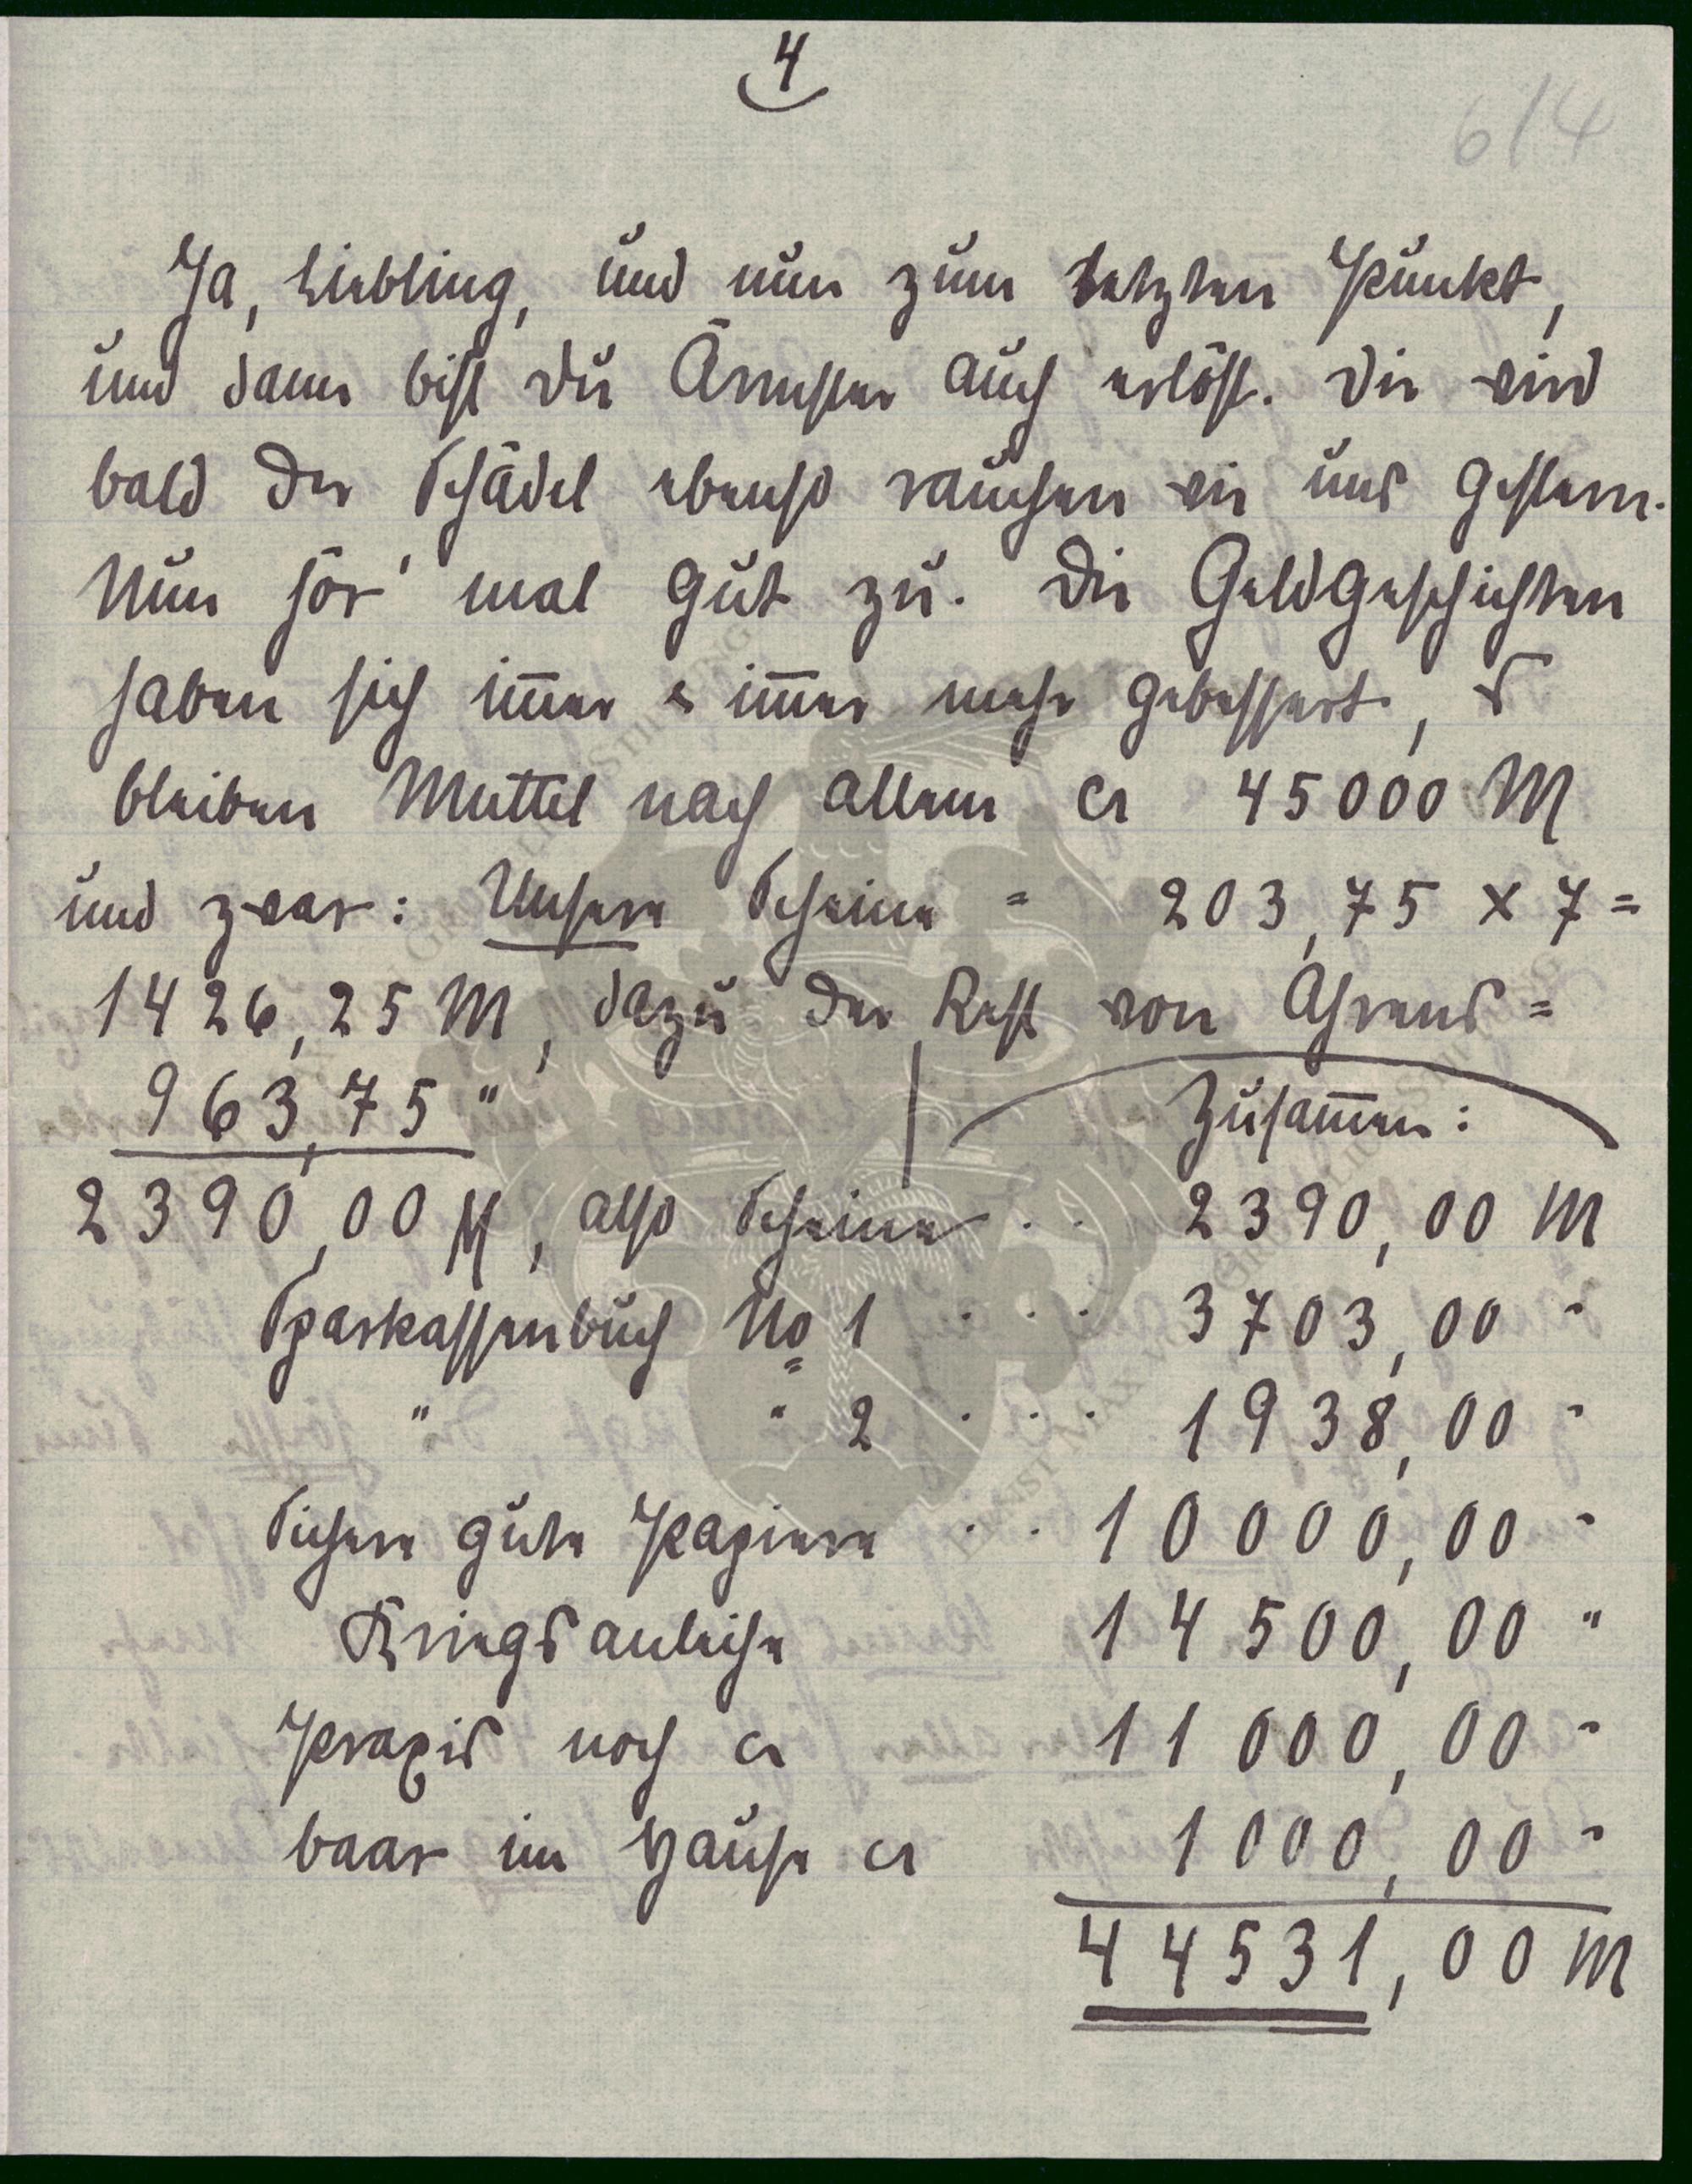 4
6/4
Ja, Liebling, und nun zum letzten Punkt,
und dann bist Du Ärmster auch erlöst. Dir wird
bald der Schädel ebenso rauchen wie uns gestern.
Nun hör' mal gut zu. Die Geldgeschichten
haben sich im̅er & im̅er mehr gebessert, es
bleiben Muttel nach allem ca 45000 M
und zwar: Unsere Scheine = 203,75 x 7 =
1426,25 M, dazu der Rest von Ahrens =
963,75 "
Zusam̅en:
2390,00 M, also Scheine . . 2390,00 M
Sparkassenbuch No 1 . . . 3703,00 "
" " 2 . . . 1938,00 "
Sichere gute Papiere . . 10000,00 "
Kriegsanleihe 14500,00 "
Praxis noch ca 11000,00 "
baar im Hause ca 1000,00 "
44531,00 M